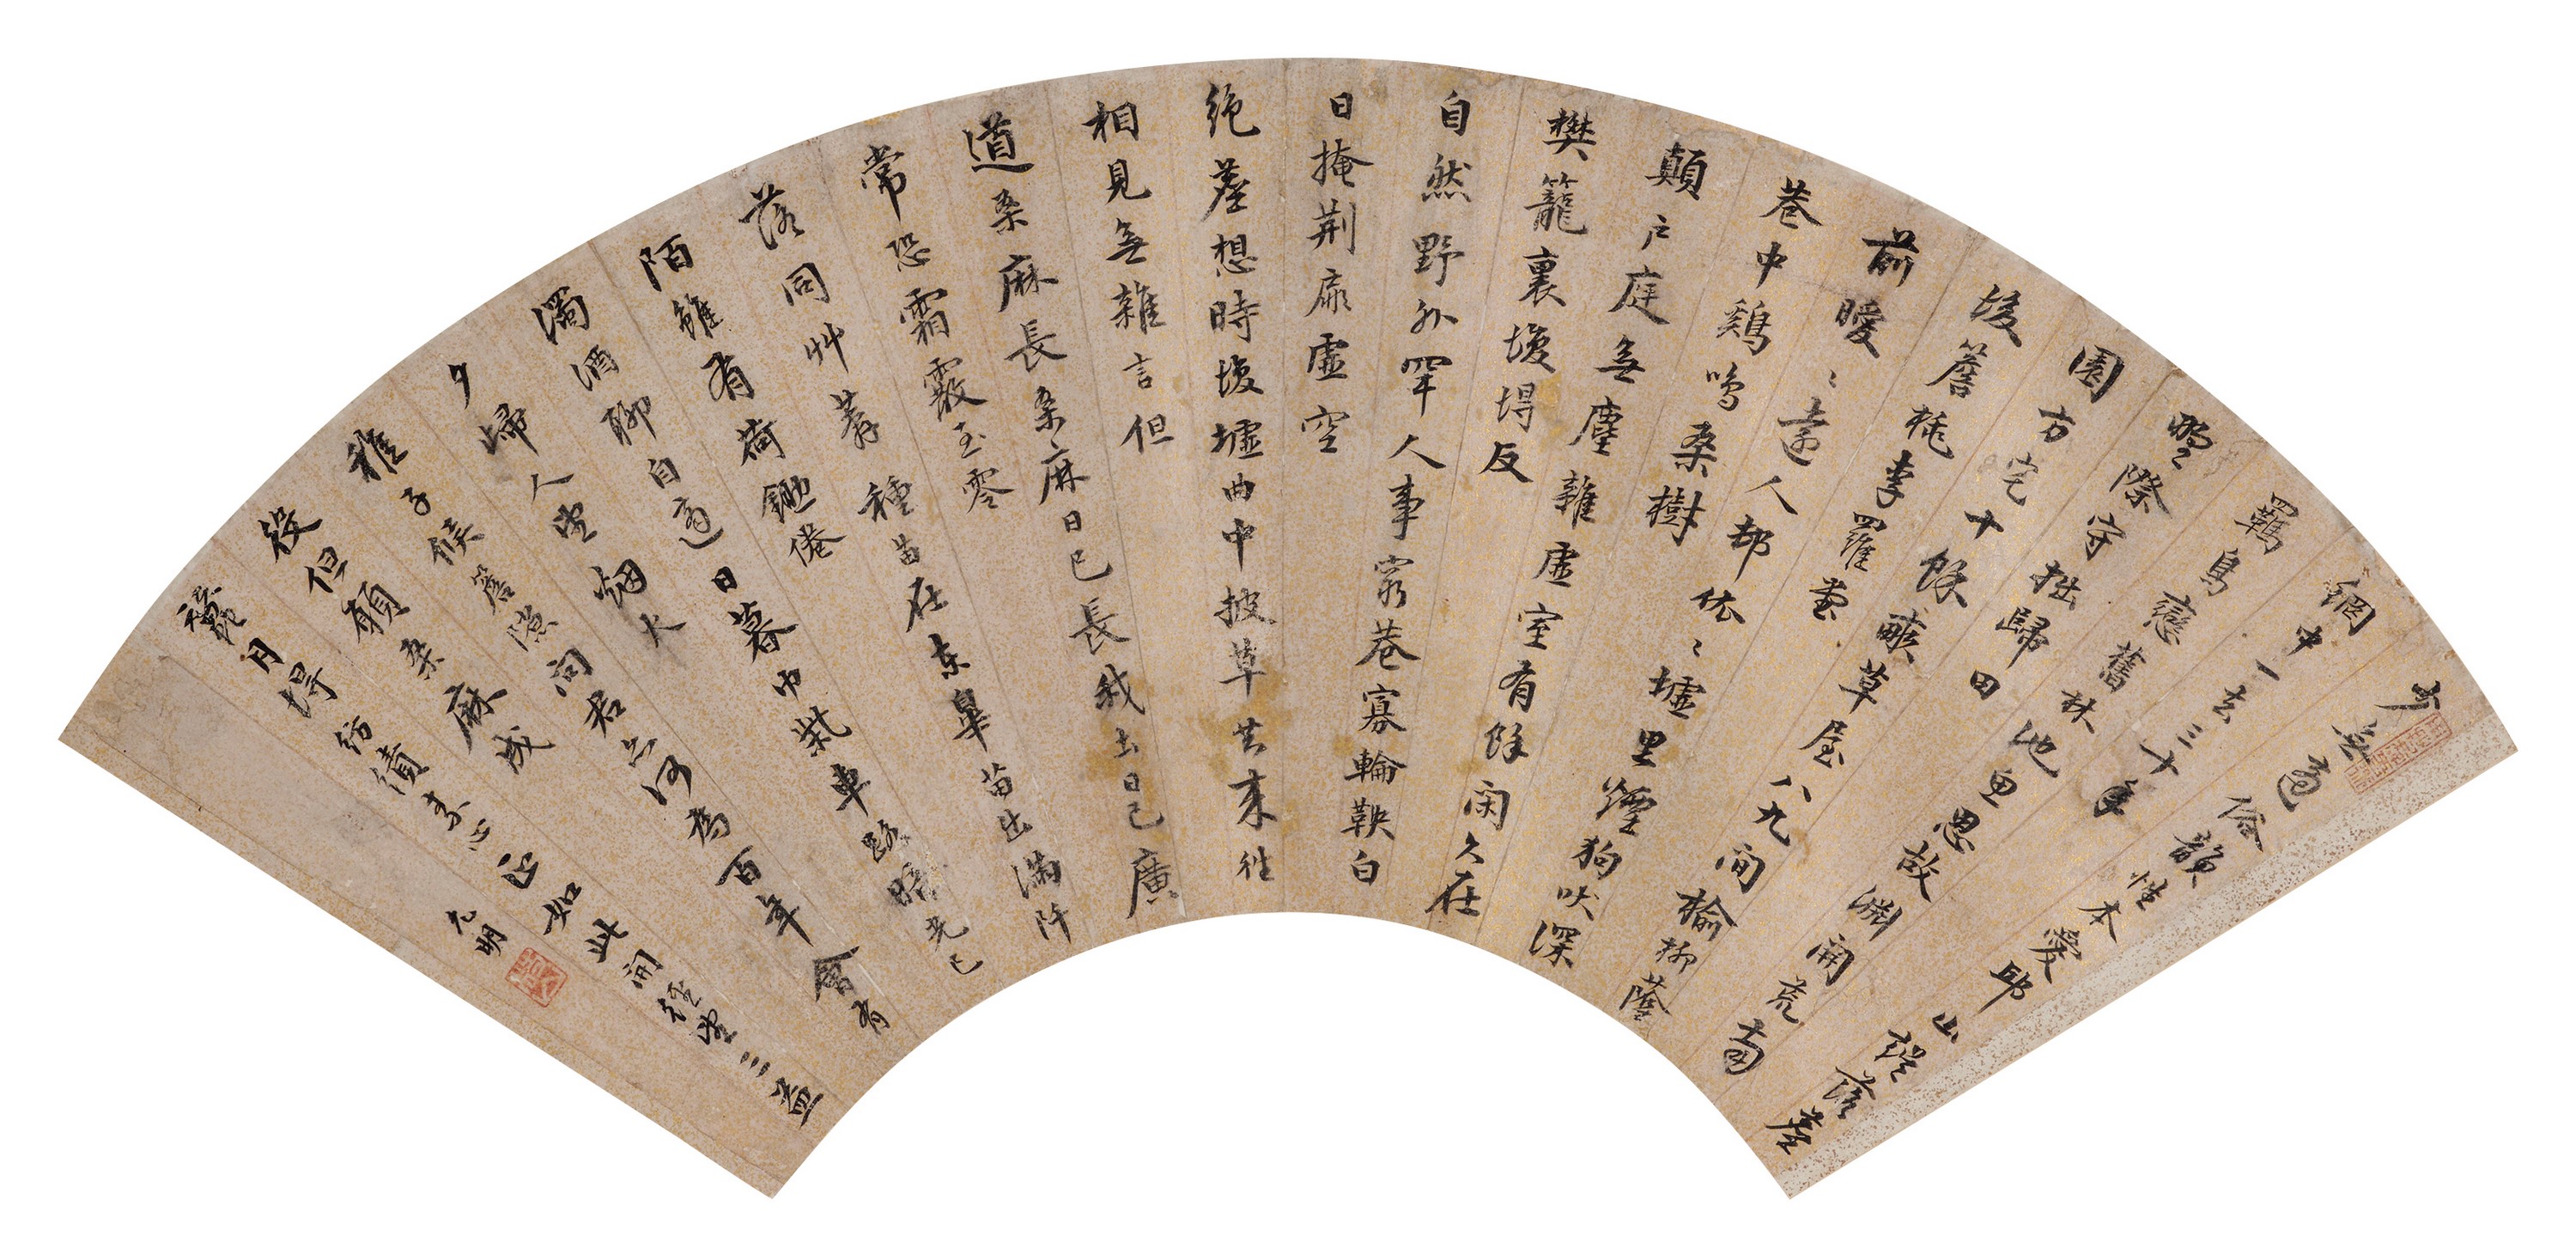 少無適俗韻性本愛邱山誤落塵
網中一去三十年
羈鳥戀舊林池魚思故淵開荒南
野際守拙歸田
園方宅十餘畝草屋八九間榆柳蔭
後簷桃李羅堂
前曖〻遠人邨依〻墟里煙狗吠深
巷中鷄鳴桑樹
顛戶庭無塵雜虛室有餘閑久在
樊籠裏復得反
自然野外罕人事窮巷寡輪鞅白
日掩荆扉虛空
絕塵想時復墟曲中披草共來往
相見無雜言但
道桑麻長桑麻日已長我土日已廣
常恐霜霰至零
落同艸莽種苗在東皐苗生滿阡
陌雖有荷鋤倦
濁酒聊自適日暮巾柴車路暗光已
夕歸人望烟火
稚子候簷隙問君亦何為百年會有
役但願桑麻成
蠶月得紡績素心正如此開徑望三益
允明